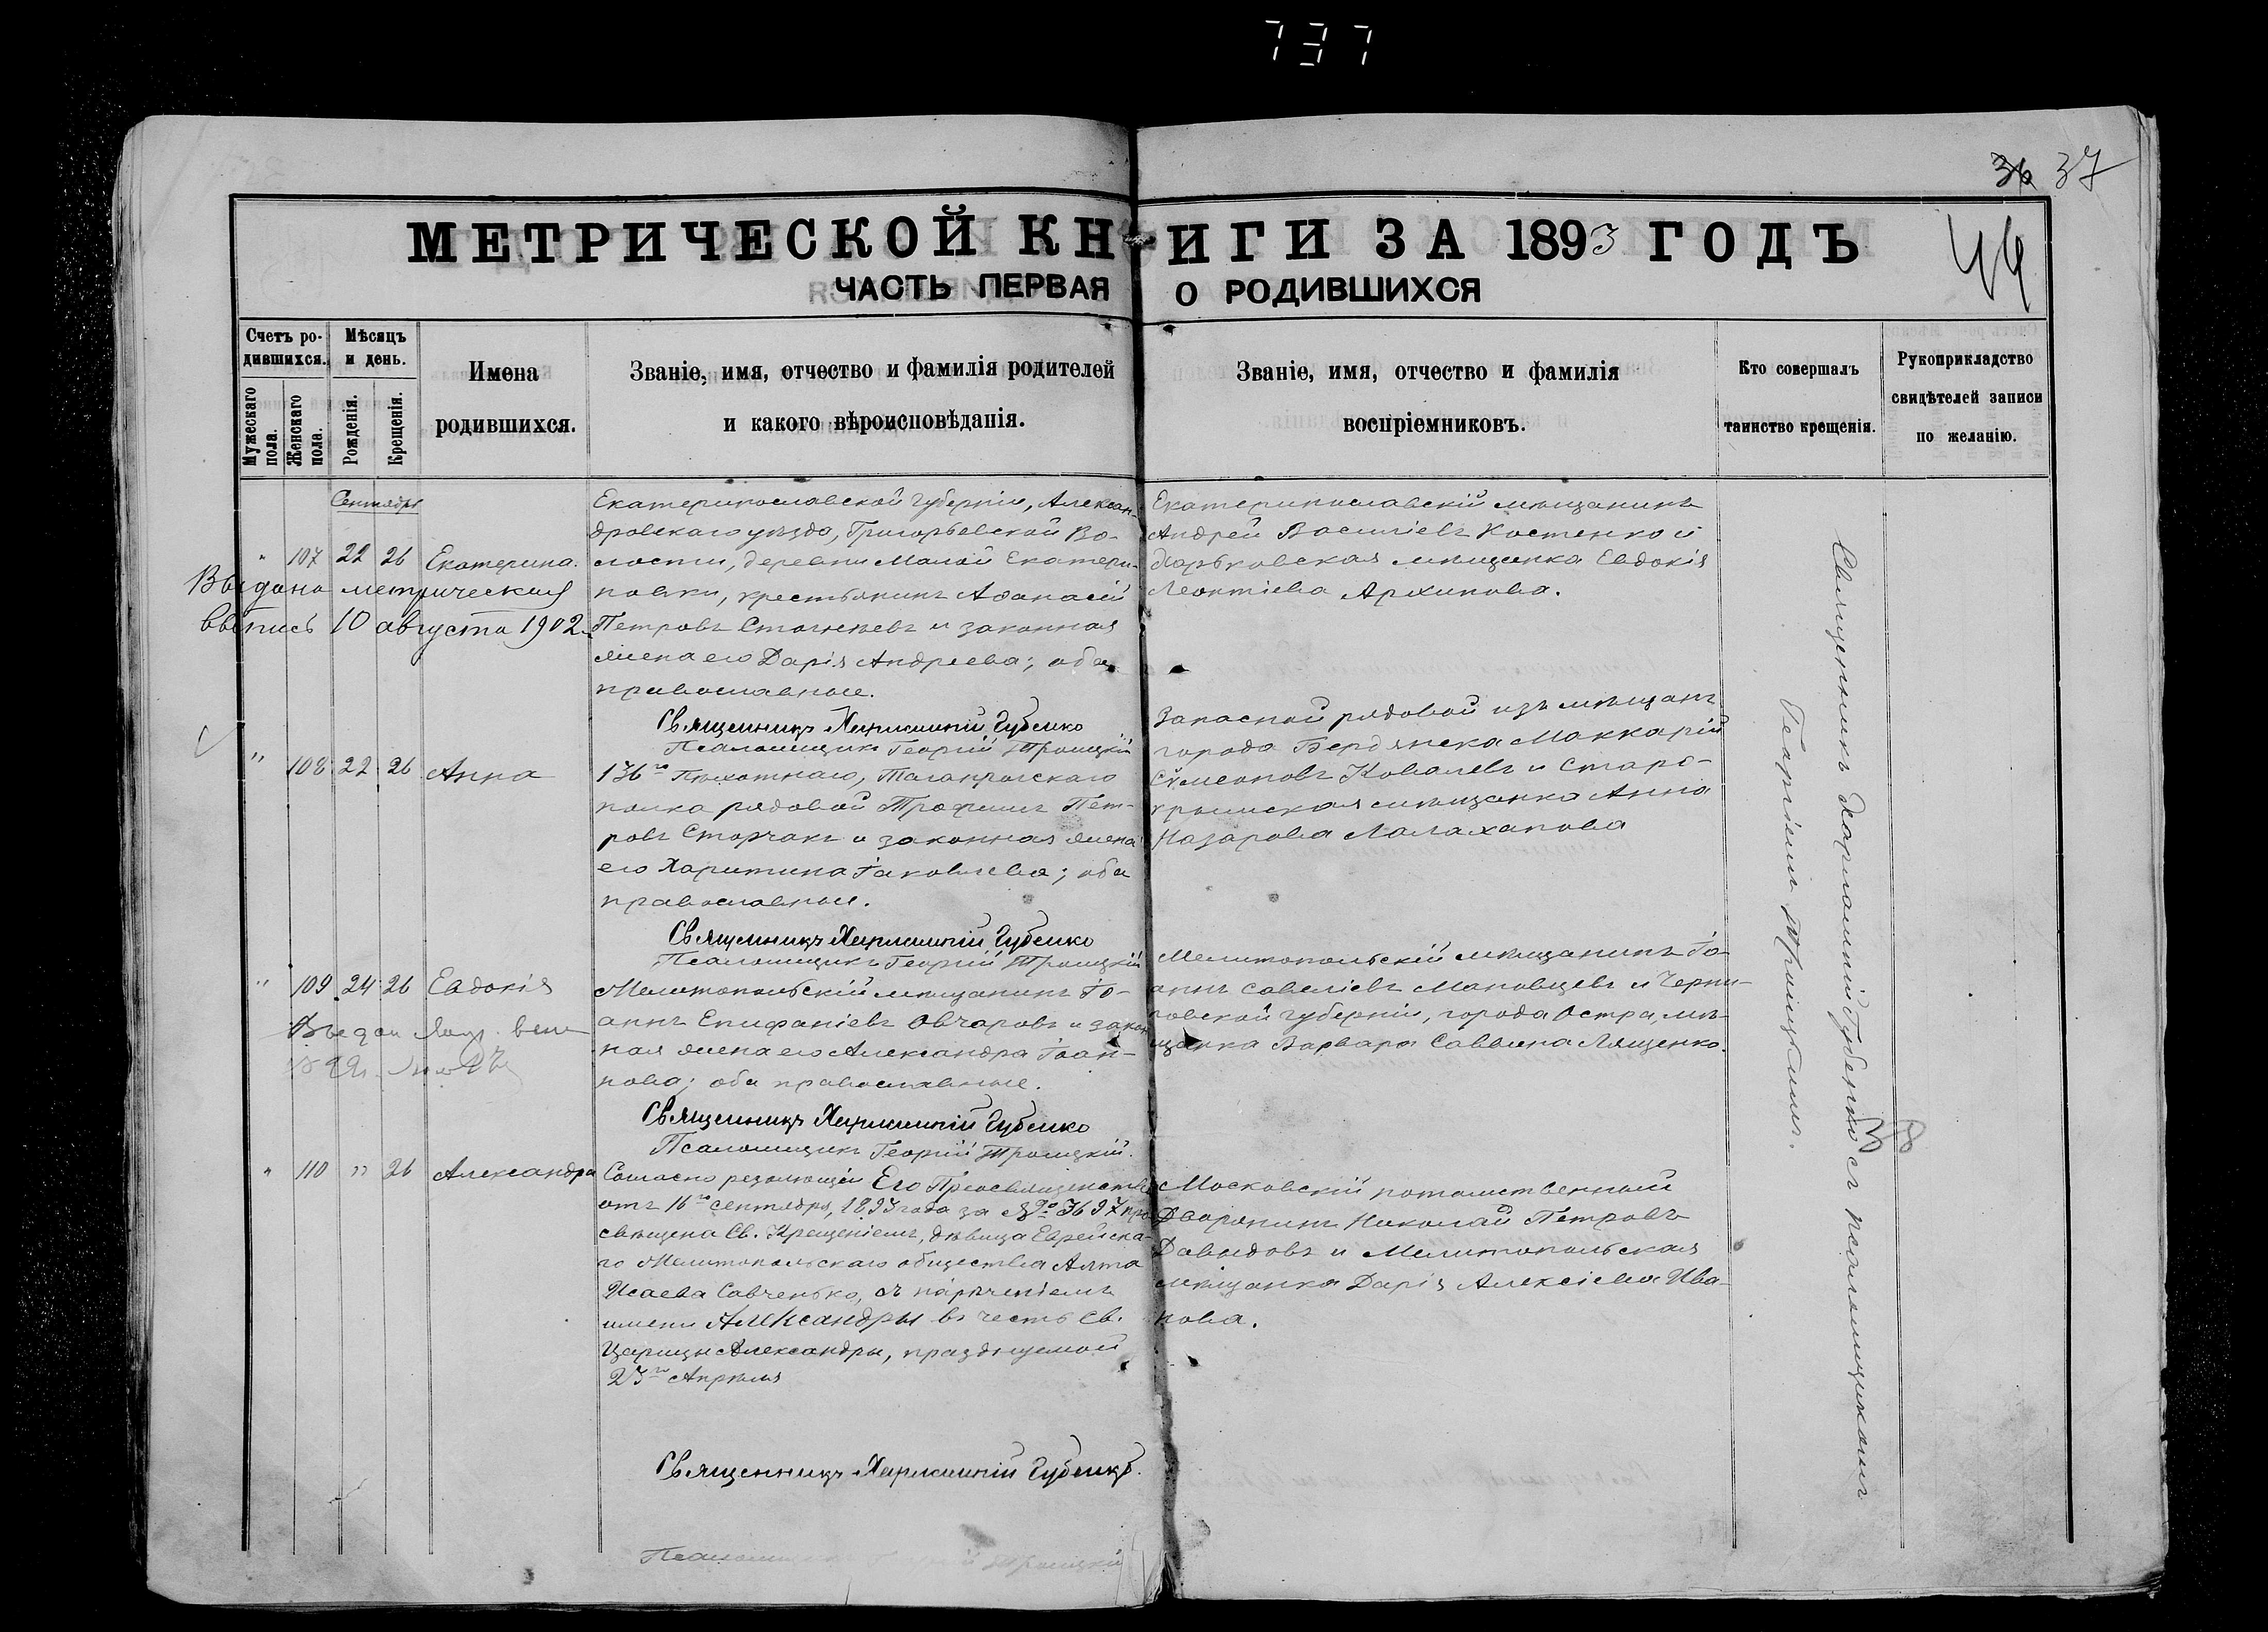 737
36 37
МЕТРИЧЕСКОЙ КНИГИ ЗА 1893 ГОДЪ
44
ЧАСТЬ ПЕРВАЯ О РОДИВШИХСЯ
Счетъ ро-
дившихся.
Мужескаго пола.
Женскаго пола.
Мѣсяцъ
и день.
Рожденія.
Крещенія.
Имена
родившихся.
Званіе, имя, отчество и фамилія родителей
и какого вѣроисповѣданія.
Званіе, имя, отчество и фамилія
воспріемниковъ.
Кто совершалъ
таинство крещенія.
Рукоприкладство
свидѣтелей записи
по желанію.
Сентябрь
" 107 22 26 Екатерина.
Выдана метрическая
выпись 10 августа 1902
Екатеринославской губерніи, Алексан-
дровскаго уѣзда, Григорьевской Во-
лости, деревни Малой Екатери-
новки, крестьянинъ Аѳанасій
Петровъ и законная
жена его Дарія Андреева; оба
православные.
Священникъ Харлампій Губенко
Псаломщикъ Георгій Троицкій
Екатеринославскій мѣщанинъ
Андрей Василіевъ Костенко и
Харьковская мѣщанка Евдокія
Леонтіева Архипова.
" 108 22 26 Анна
136го Пѣхотнаго, Таганрогскаго
полка рядовой Трофимъ Пет-
ровъ Сторчакъ и законная жена
его Харитина Іаковлева; оба
православные.
Священникъ Харлампій Губенко
Псаломщикъ Георгій Троицкій
Запасной рядовой изъ мѣщанъ
города Бердянска Маккарій
Симеоновъ Ковалевъ и Старо-
крымская мѣщанка Анна
Назарова Малаханова
" 109 24 26 Евдокія
Мелитопольскій мѣщанинъ Іо-
аннъ Епифаніевъ Овчаровъ и закон-
ная жена его Александра Іоан-
нова; оба православные.
Священникъ Харлампій Губенко
Псаломщикъ Георгій Троицкій.
Мелитопольскій мѣщанинъ Іо-
аннъ Савеліевъ Маповцевъ и Черни-
говской губерніи, города Остра, мѣ-
щанка Варвара Саввина Лященко.
" 110 " 26 Александра
Согласно резолюціи Его Преосвященства
отъ 16го сентября, 1893 года за № 3697 про-
свѣщена Св. Крещеніемъ, дѣвица Еврейска-
го Мелитопольскаго общества
Исаева Савченько, съ нареченіемъ
имени Александры въ честь Св.
Царицы Александры, празднуемой
23го Апрѣля
Священникъ Харлампій Губенко.
Псаломщикъ Георгій Троицкій
Московскій потомственный
Дворянинъ Николай Петровъ
Давыдовъ и Мелитопольская
мѣщанка Дарія Алексіева Ива-
нова.
Священникъ Харлампій Губенко съ псаломщикомъ
Георгіемъ Троицкимъ.